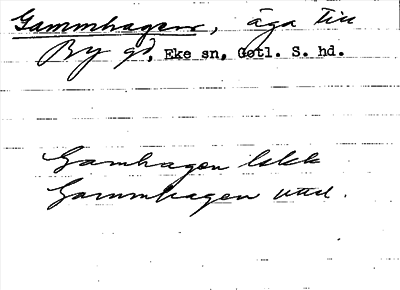 Gammhagen, äga till
By gd, Eke sn, Gotl. S. hd.
Gamhagen
Gammhagen uttal.